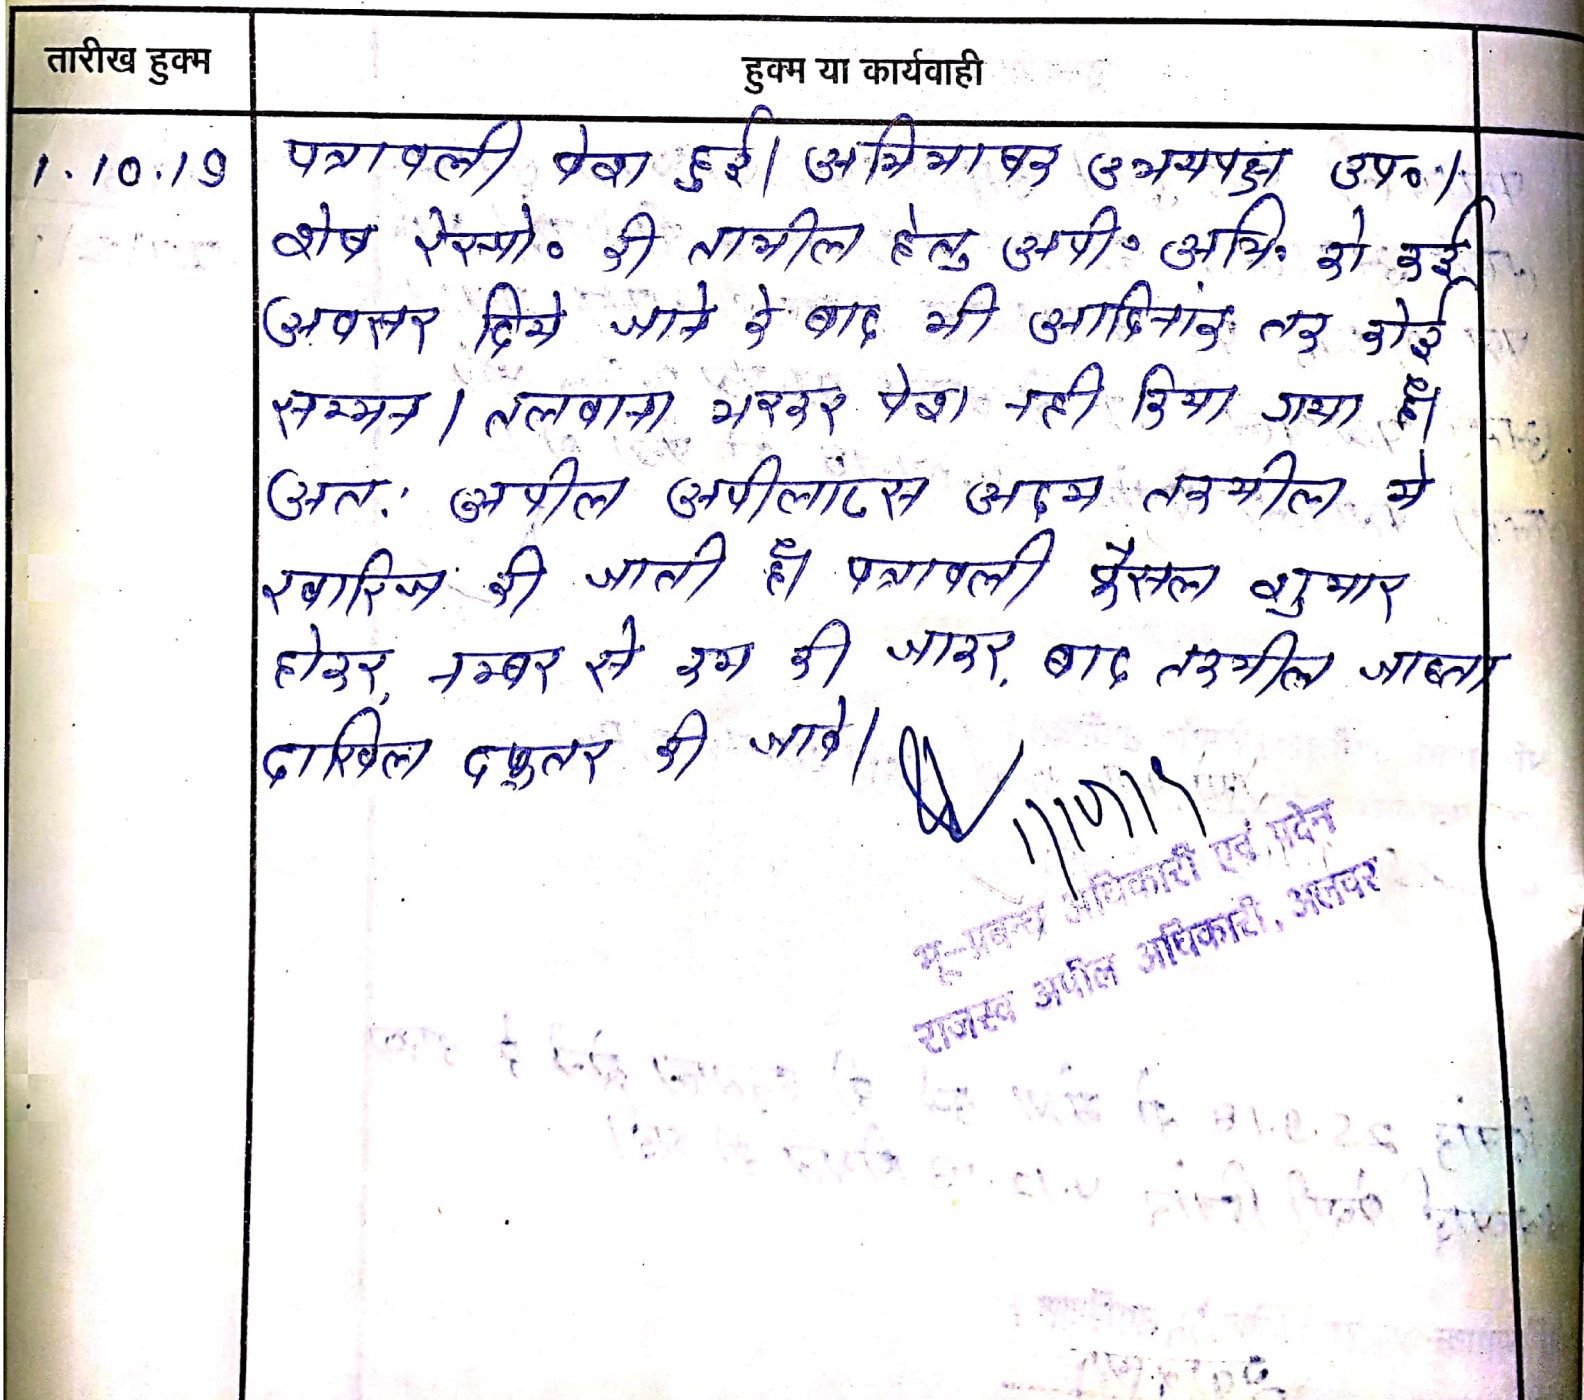 तारीख हुक्म
हुक्म या कार्यवाही
1.10.19
पत्रावली पेश हुई। अभिभाषक उभयपक्ष उप०।
शेष रेस्पो० की तामील हेतु अपी० अभि. को कई
अवसर दिये जाने के बाद भी आदिनांक तक कोई
सम्मन / तलवाना भरकर पेश नही किया गया है।
अत: अपील अपीलांटस अदम तकमील मे
खारिज की जाती है। पत्रावली फैसल शुमार
होकर, नम्बर से कम की जाकर, बाद तकमील जाब्ता
दाखिल दफ्तर की जावे।
1/10/19
भू-प्रबन्ध अधिकारी एवं पदेन
राजस्व अपील अधिकारी, अलवर